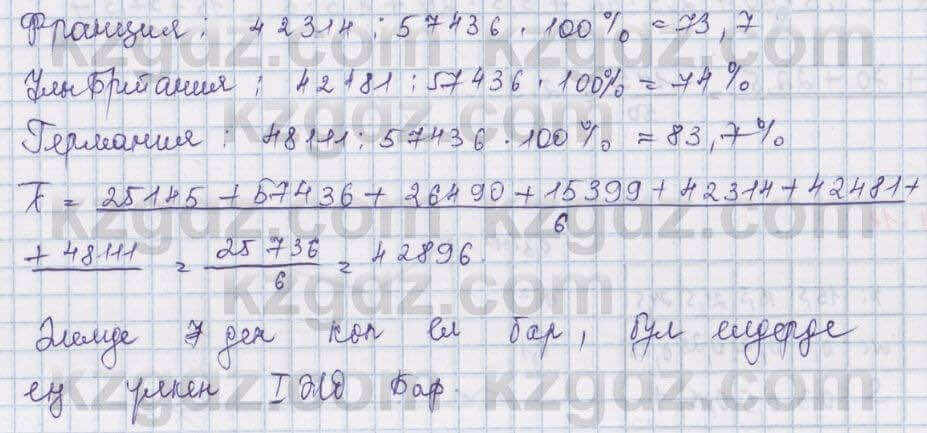 Франция : 42314 : 57436 · 100% = 73,7
Ұлы Британия : 42481 : 57436 · 100% = 74%
Германия : 48111 : 57436 · 100% = 83,7%
x̄ = 25145 + 57436 + 26490 + 15399 + 42314 + 42481 +
6
+ 48111 = 25 736 = 42896
6
Әлемде 7 ден көп ел бар, бұл елдерде
ең үлкен ІЖӨ бар.
kzgdz.com